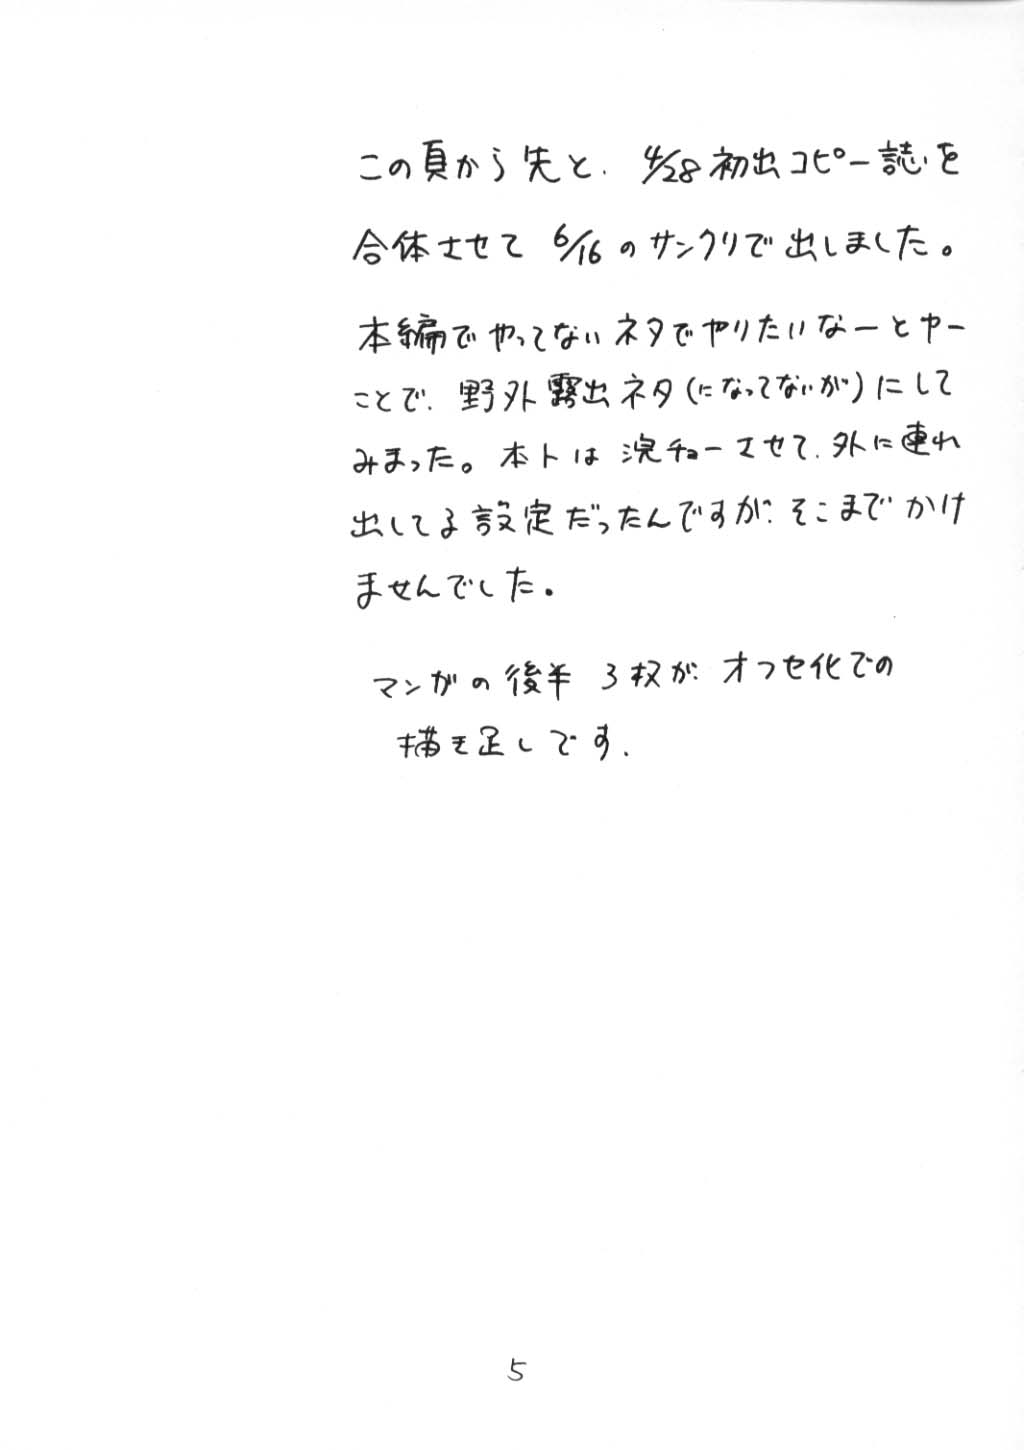 この頁から先と、4/28初出コピー誌を
合体させて 6/16のサンクリで出しました。
本編でやってないネタでやりたいなーとヤー
ことで、野外露出ネタ(になってないが)にして
みまった。本トは浣チョーさせて、外に連れ
出してる設定だったんですが、そこまでかけ
ませんでした。
マンガの後半 3枚が、オフセ化での
描き足しです.
5